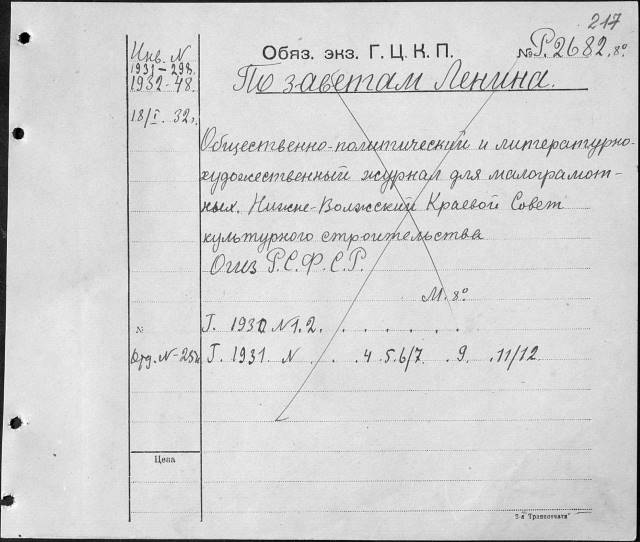 217
Инв. N
1931-298.
1932-48.
18/I. 32г.
Обяз. экз. Г. Ц. К. П.
№ Р.2682.8°
По заветам Ленина.
Общественно-политический и литературно-
художественный журнал для малограмот-
ных. Нижне-Волжский Краевой Совет
культурного строительства
Огиз Р.С.Ф.С.Р.
М. 8°
№ Г. 1930 N 1.2. . . . . . .
Отд. N-25к Г. 1931. N . . 4 5.6/7 . 9 . 11/12
Цена